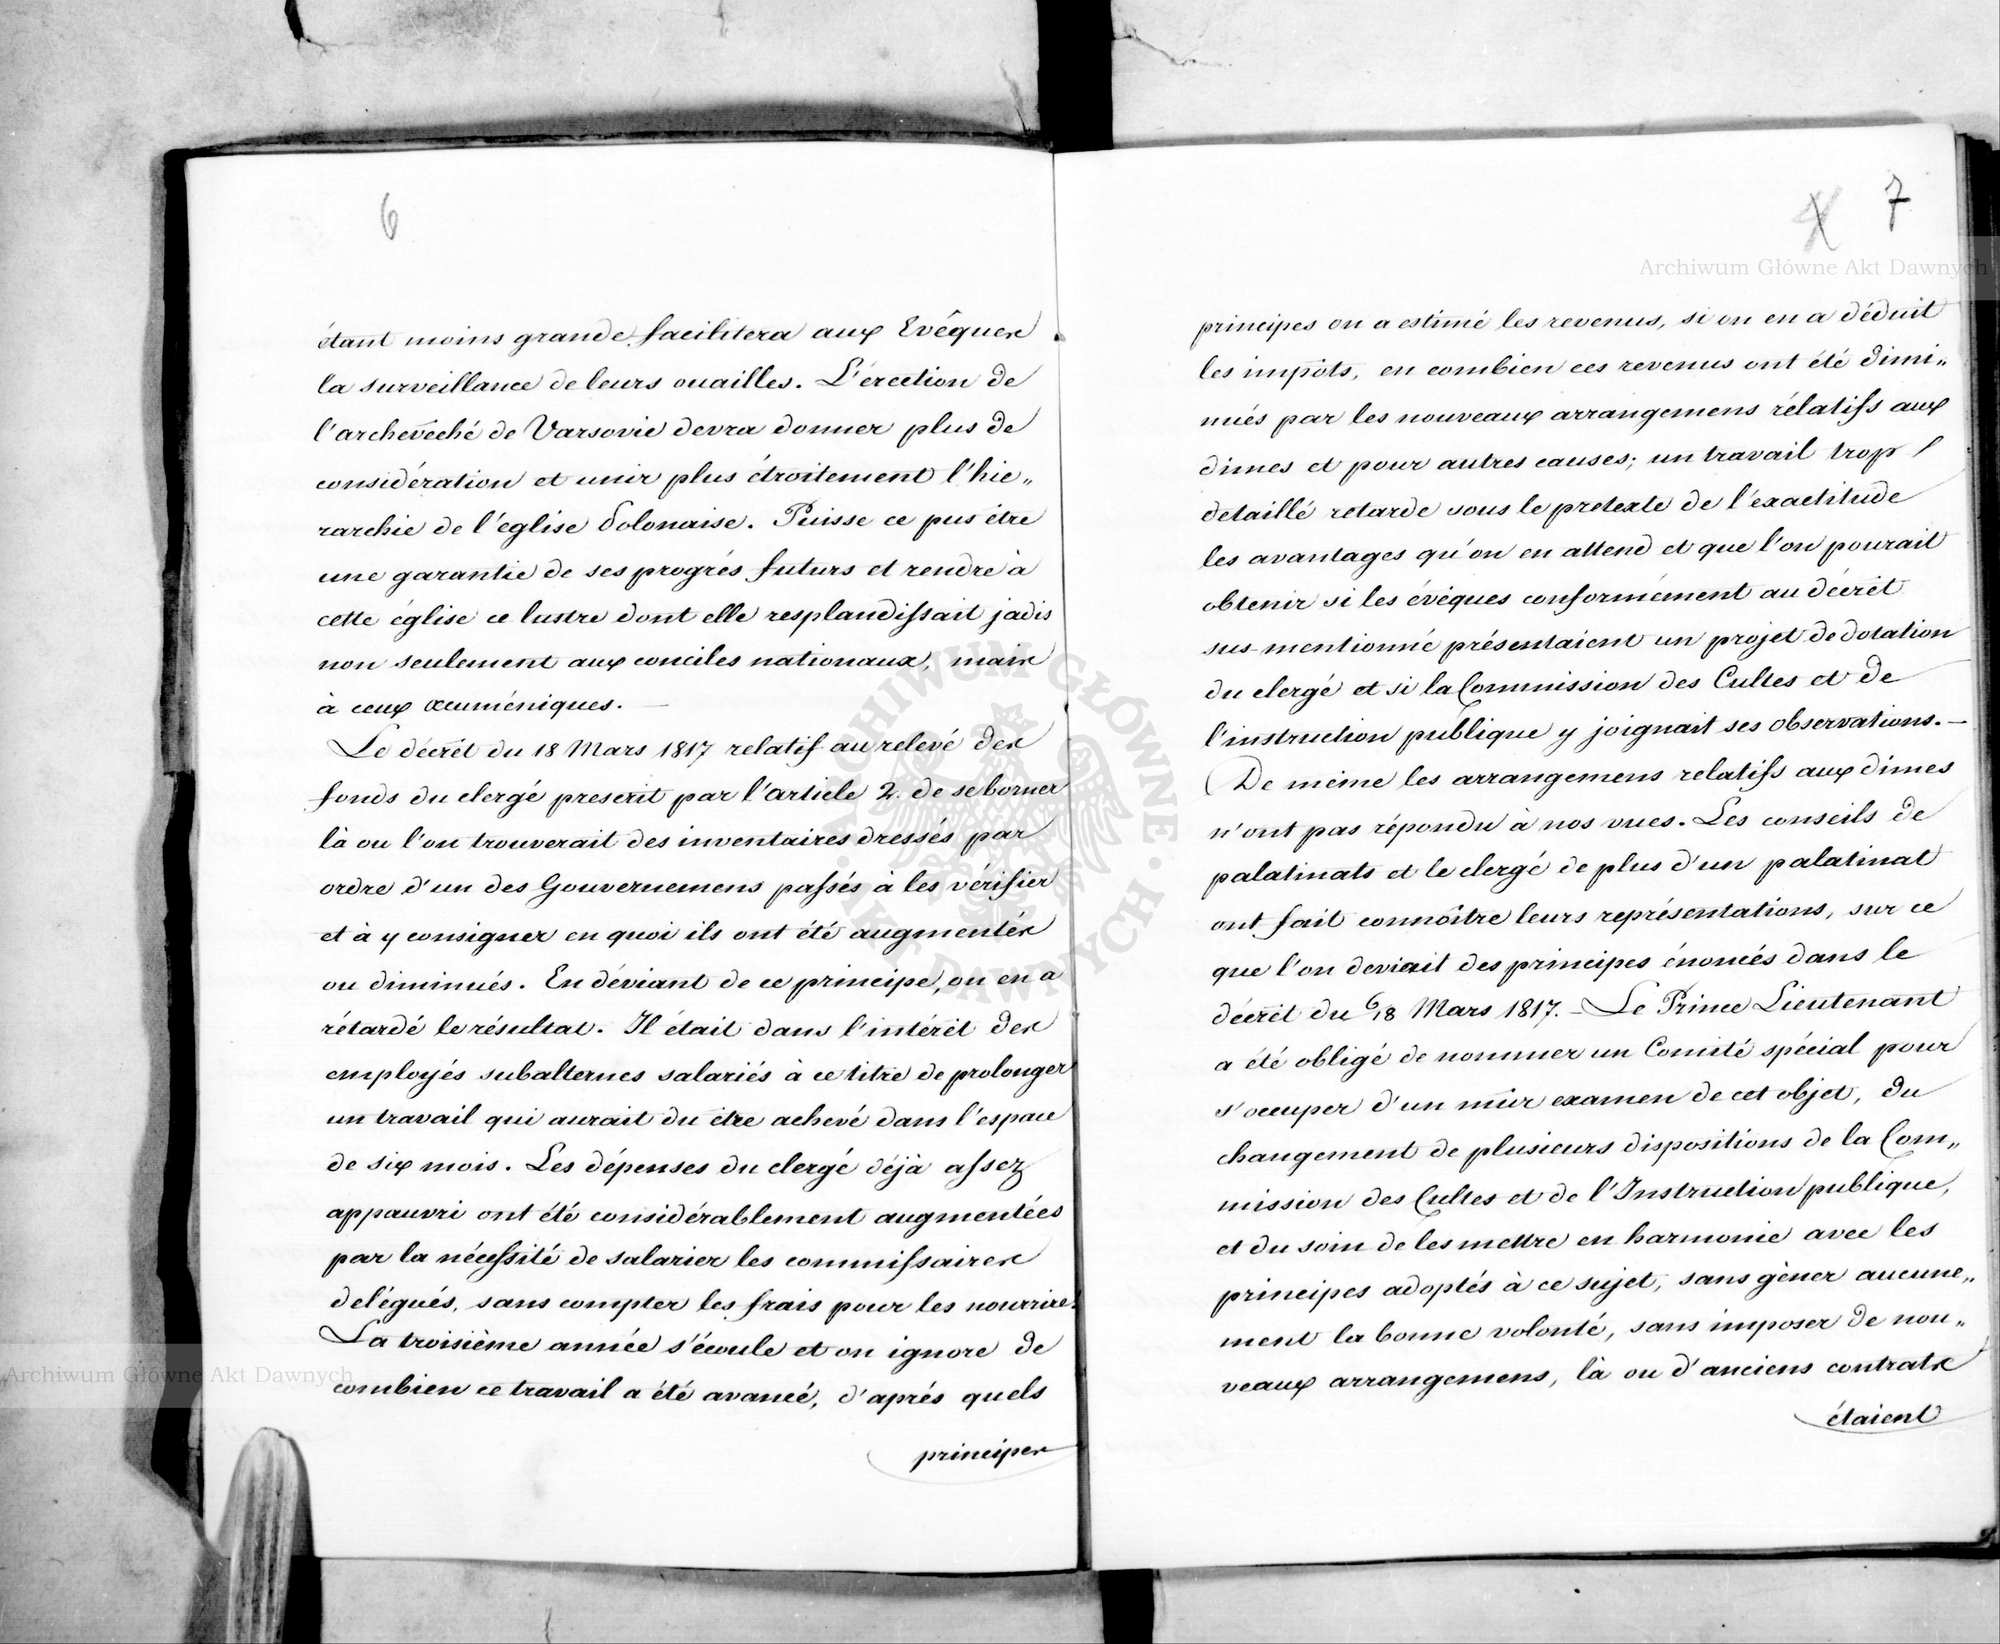 6
étant moins grande facilitera aux Evêques
la surveillance de leurs ouailles. L'érection de
l'archevêché de Varsovie devra donner plus de
considération et unir plus étroitement l'hie„
rarchie de l'église Polonaise. Puisse ce pas être
une garantie de ses progrés futurs et rendre à
cette église ce lustre dont elle resplandissait jadis
non seulement aux conciles nationaux, mais
à ceux œcuméniques. —
Le décrêt du 18 Mars 1817 relatif au relevé des
fonds du clergé prescrit par l'article 2. de se borner
là ou l'on trouverait des inventaires dressés par
ordre d'un des Gouvernemens passés à les vérifier
et à y consigner en quoi ils ont été augmentés
ou diminués. En déviant de ce principe, on en a
rétardé le résultat. Il était dans l'intérêt des
employés subalternes salariés à ce titre de prolonger
un travail qui aurait du être achevé dans l'espace
de six mois. Les dépenses du clergé déjà assez
appauvri ont été considérablement augmentées
par la nécessité de salarier les commissaires
délégués, sans compter les frais pour les nourrire.
La troisième année s'écoule et on ignore de
combien ce travail a été avancé, d'aprés quels
principes
7
principes on a estimé les revenus, si on en a déduit
les impôts, en combien ces revenus ont été dimi„
nués par les nouveaux arrangemens rélatifs aux
dimes et pour autres causes; un travail trop
detaillé retarde sous le pretexte de l'exactitude
les avantages qu'on en attend et que l'on pourait
obtenir si les évêques conformément au décrêt
sus-mentionné présentaient un projet de dotation
du clergé et si la Commission des Cultes et de
l'instruction publique y joignait ses observations. —
De même les arrangemens relatifs aux dimes
n'ont pas répondu à nos vues. Les conseils de
palatinats et le clergé de plus d'un palatinat
ont fait connoître leurs représentations, sur ce
que l'on deviait des principes énoncés dans le
décrêt du 6/18 Mars 1817. — Le Prince Lieutenant
a été obligé de nommer un Comité spécial pour
s'occuper d'un mûr examen de cet objet, du
changement de plusieurs dispositions de la Com„
mission des Cultes et de l'Instruction publique,
et du soin de les mettre en harmonie avec les
principes adoptés à ce sujet, sans gêner aucune„
ment la bonne volonté, sans imposer de nou„
veaux arrangemens, là ou d'anciens contrats
étaient
Archiwum Główne Akt Dawnych
Archiwum Główne Akt Dawnych
ARCHIWUM GŁÓWNE AKT DAWNYCH